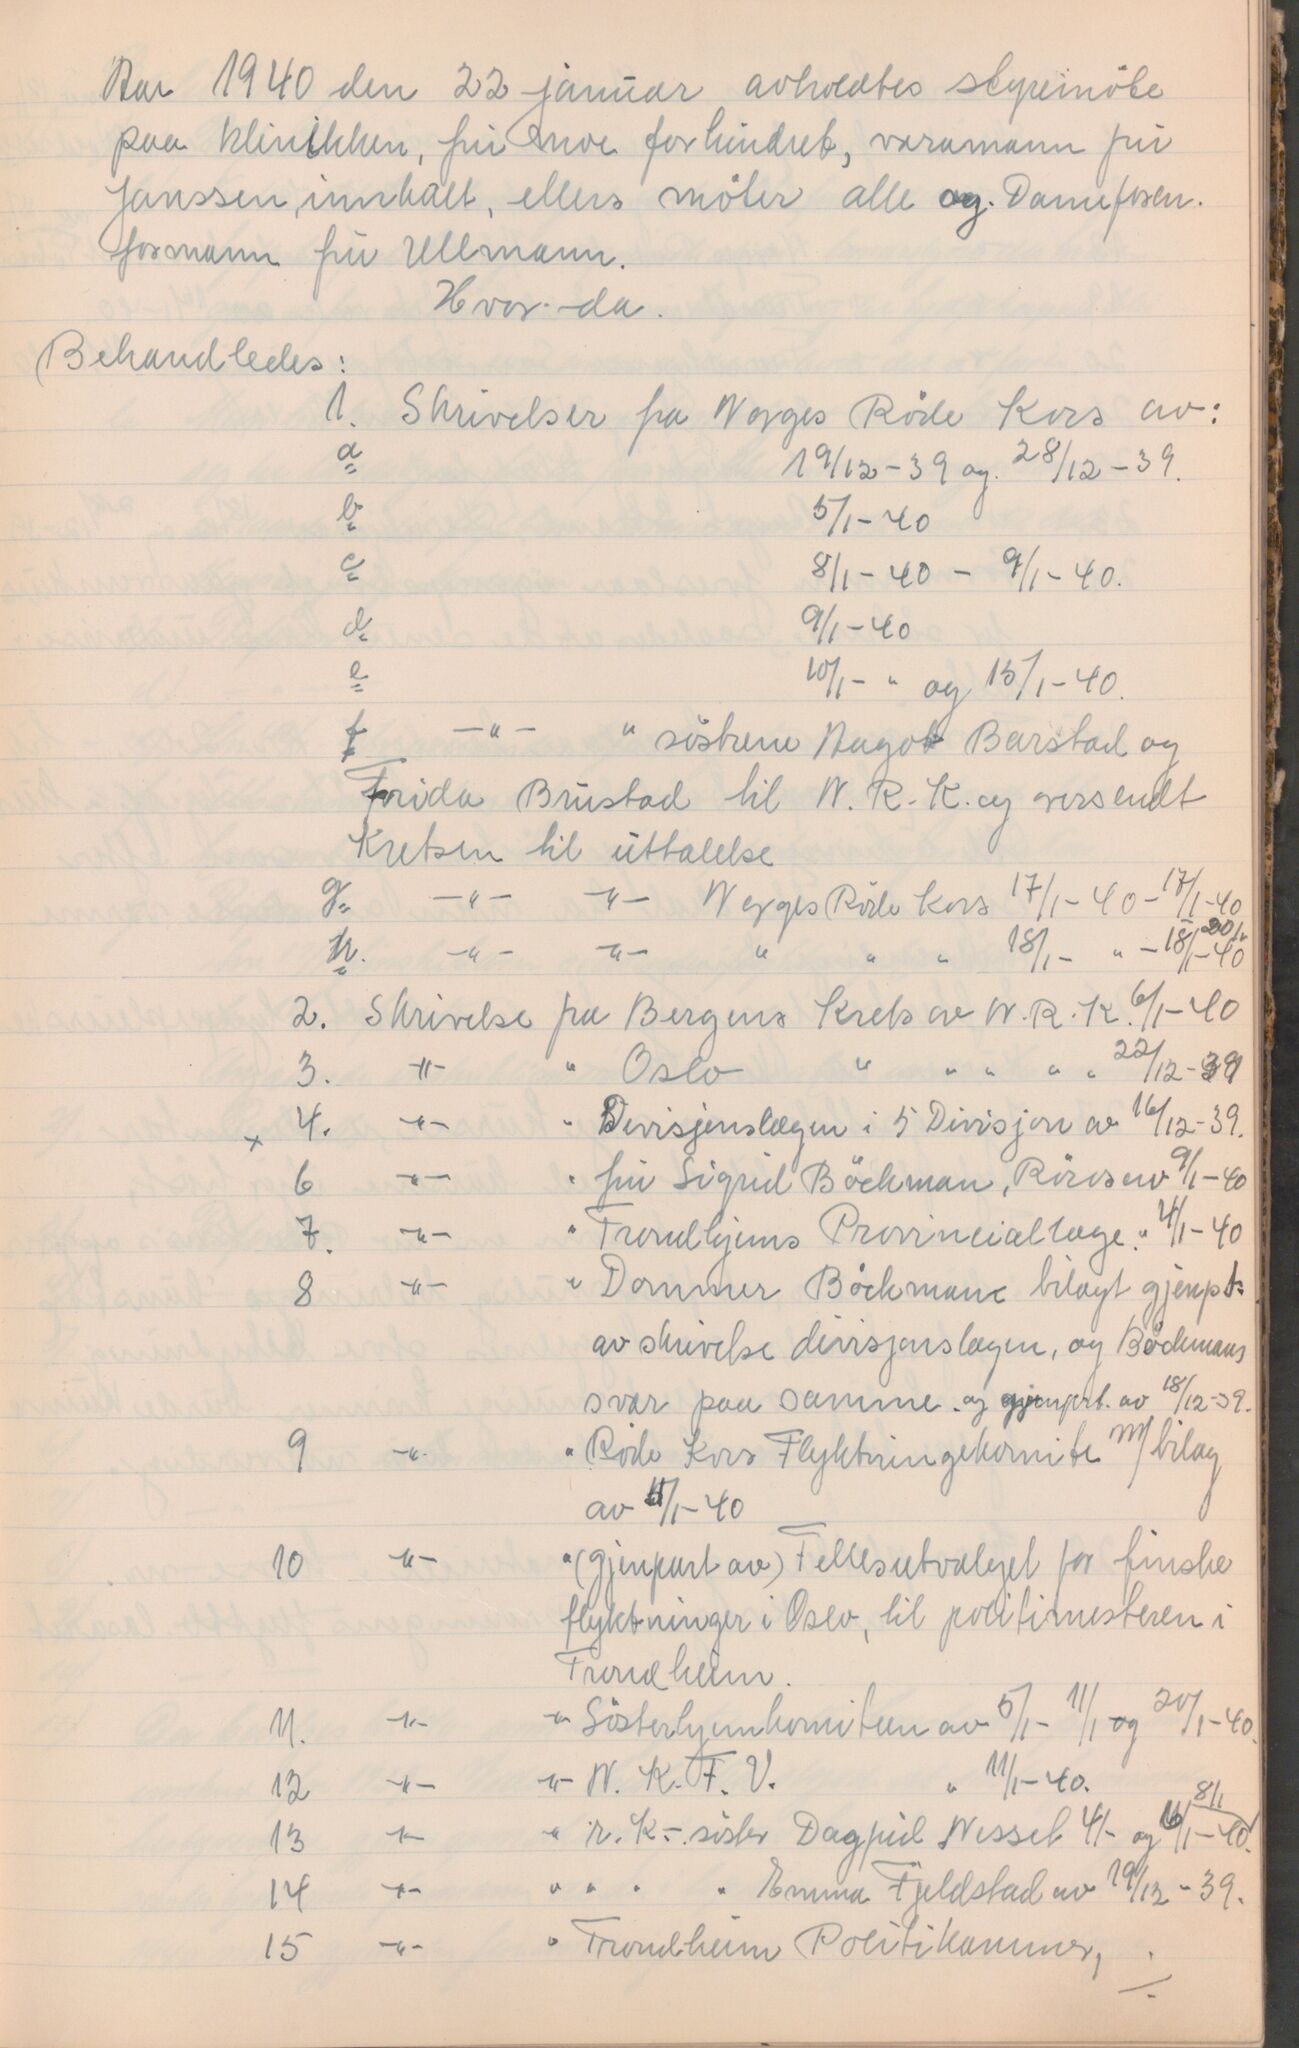 Aar 1940 den 22 januar avholdtes styremöte
paa klinikken, frü Moe forhindret, varamann frü
Janssen, innkalt, ellers möter alle og Dameforen.
formann frü Ullmann.
Hvor-da.
Behandledes:
1. Skrivelser fra Norges Röde Kors av:
a 19/12-39 og 28/12-39.
b 5/1-40
c 8/1-40 - 9/1-40.
d 9/1-40
e 10/1- " og 15/1-40.
f -"- " söstrene Aagot Barstad og
Frida Brustad til N.R.K. og oversendt
Kretsen til üttalelse
g. -"- -"- Norges Röde Kors 17/1-40-17/1-40
h. -"- -"- " " " 18/1- " -18/1-40
2. Skrivelse fra Bergens Krets av N.R.K. 6/1-40
3. -"- " Oslo " " " " " 22/12-39
x 4. -"- " Divisjonslægen i 5 Divisjon av 16/12-39.
6 -"- " frü Sigrid Böckman, Röros av 9/1-40
7. -"- " Trondhjems Provinciallæge. " 4/1-40
8 -"- " Dommer Böckmann bilagt gjenpt.
av skrivelse divisjonslægen, og Böckmans
svar paa samme. og gjenprt. av 18/12-39.
9 -"- " Röde Kors Flyktningekomite m/bilag
av 11/1-40
10 -"- " (gjenpart av) Fellesutvalget for finske
flyktninger i Oslo, til politimesteren i
Trondheim.
11. -"- -"- Sösterhjemkomiteen av 5/1- 11/1 og 20/1-40.
12 -"- -"- N.K.F.V. " 11/1-40.
8/1
13 -"- " r.K.-söster Dagfrid Wessel 4/- og 16/1-40.
14 -"- " " " " Emma Fjeldstad av 19/12-39.
15 -"- " Trondheim Politikammer,